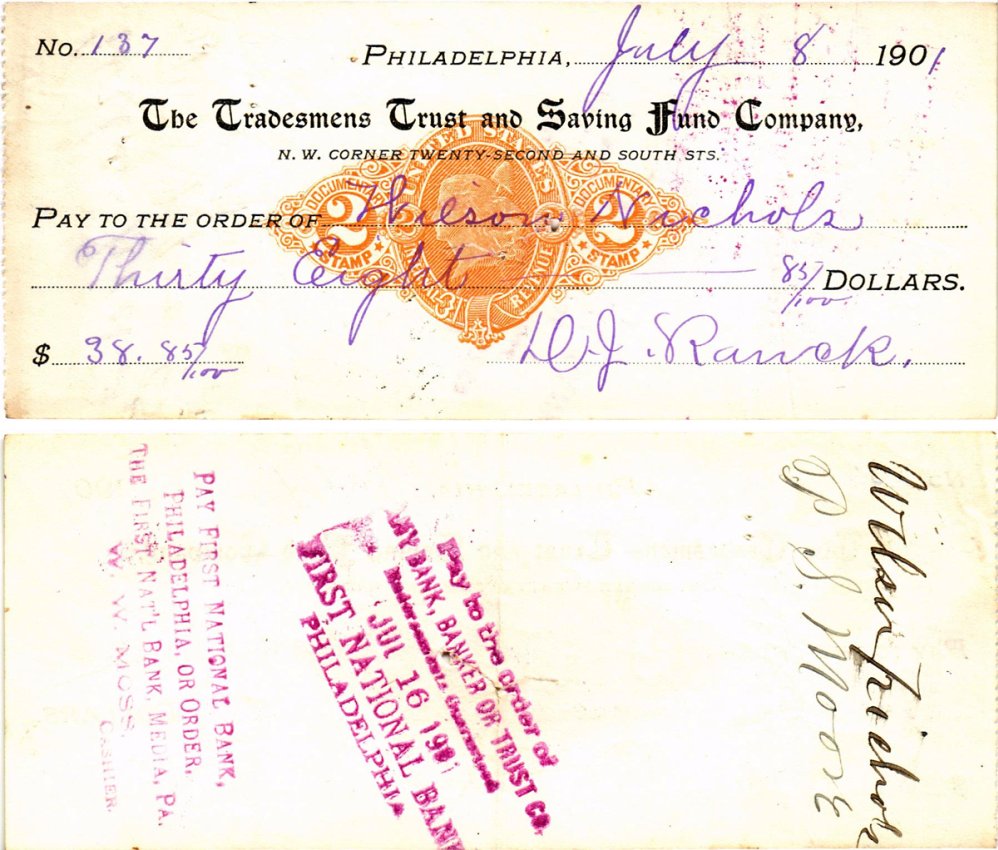 No. 137
PHILADELPHIA, July 8 1901
The Tradesmens Trust and Saving Fund Company,
N. W. CORNER TWENTY-SECOND AND SOUTH STS.
UNITED STATES
DOCUMENTARY DOCUMENTARY
2 2
STAMP STAMP
INTERNAL REVENUE
PAY TO THE ORDER OF Wilson Nichols
Thirty Eight 85/100 DOLLARS.
$ 38.85/100
D. J. Ranck.
PAY FIRST NATIONAL BANK,
PHILADELPHIA, OR ORDER,
THE FIRST NAT'L BANK, MEDIA, PA.
W. W. MOSS,
CASHIER.
Pay to the order of
ANY BANK, BANKER OR TRUST CO.
Endorsements Guaranteed
JUL 16 1901
FIRST NATIONAL BANK
PHILADELPHIA
Wilson Nichols
P S. Moore